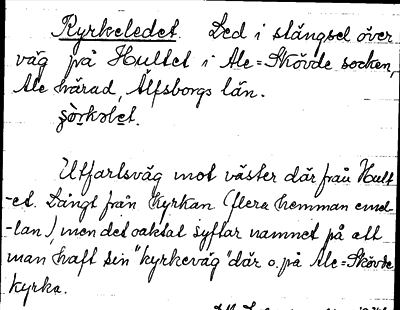 Kyrkeledet. Led i stängsel över
väg på Hultet i Ale=Skövde socken,
Ale härad, Älfsborgs län.
Utfartsväg mot väster där från Hult-
-et. Långt från kyrkan (flera hemman emel-
-lan), men det oaktat syftar namnet på att
man haft sin "kyrkeväg" där o. på Ale=Skövde
kyrka.